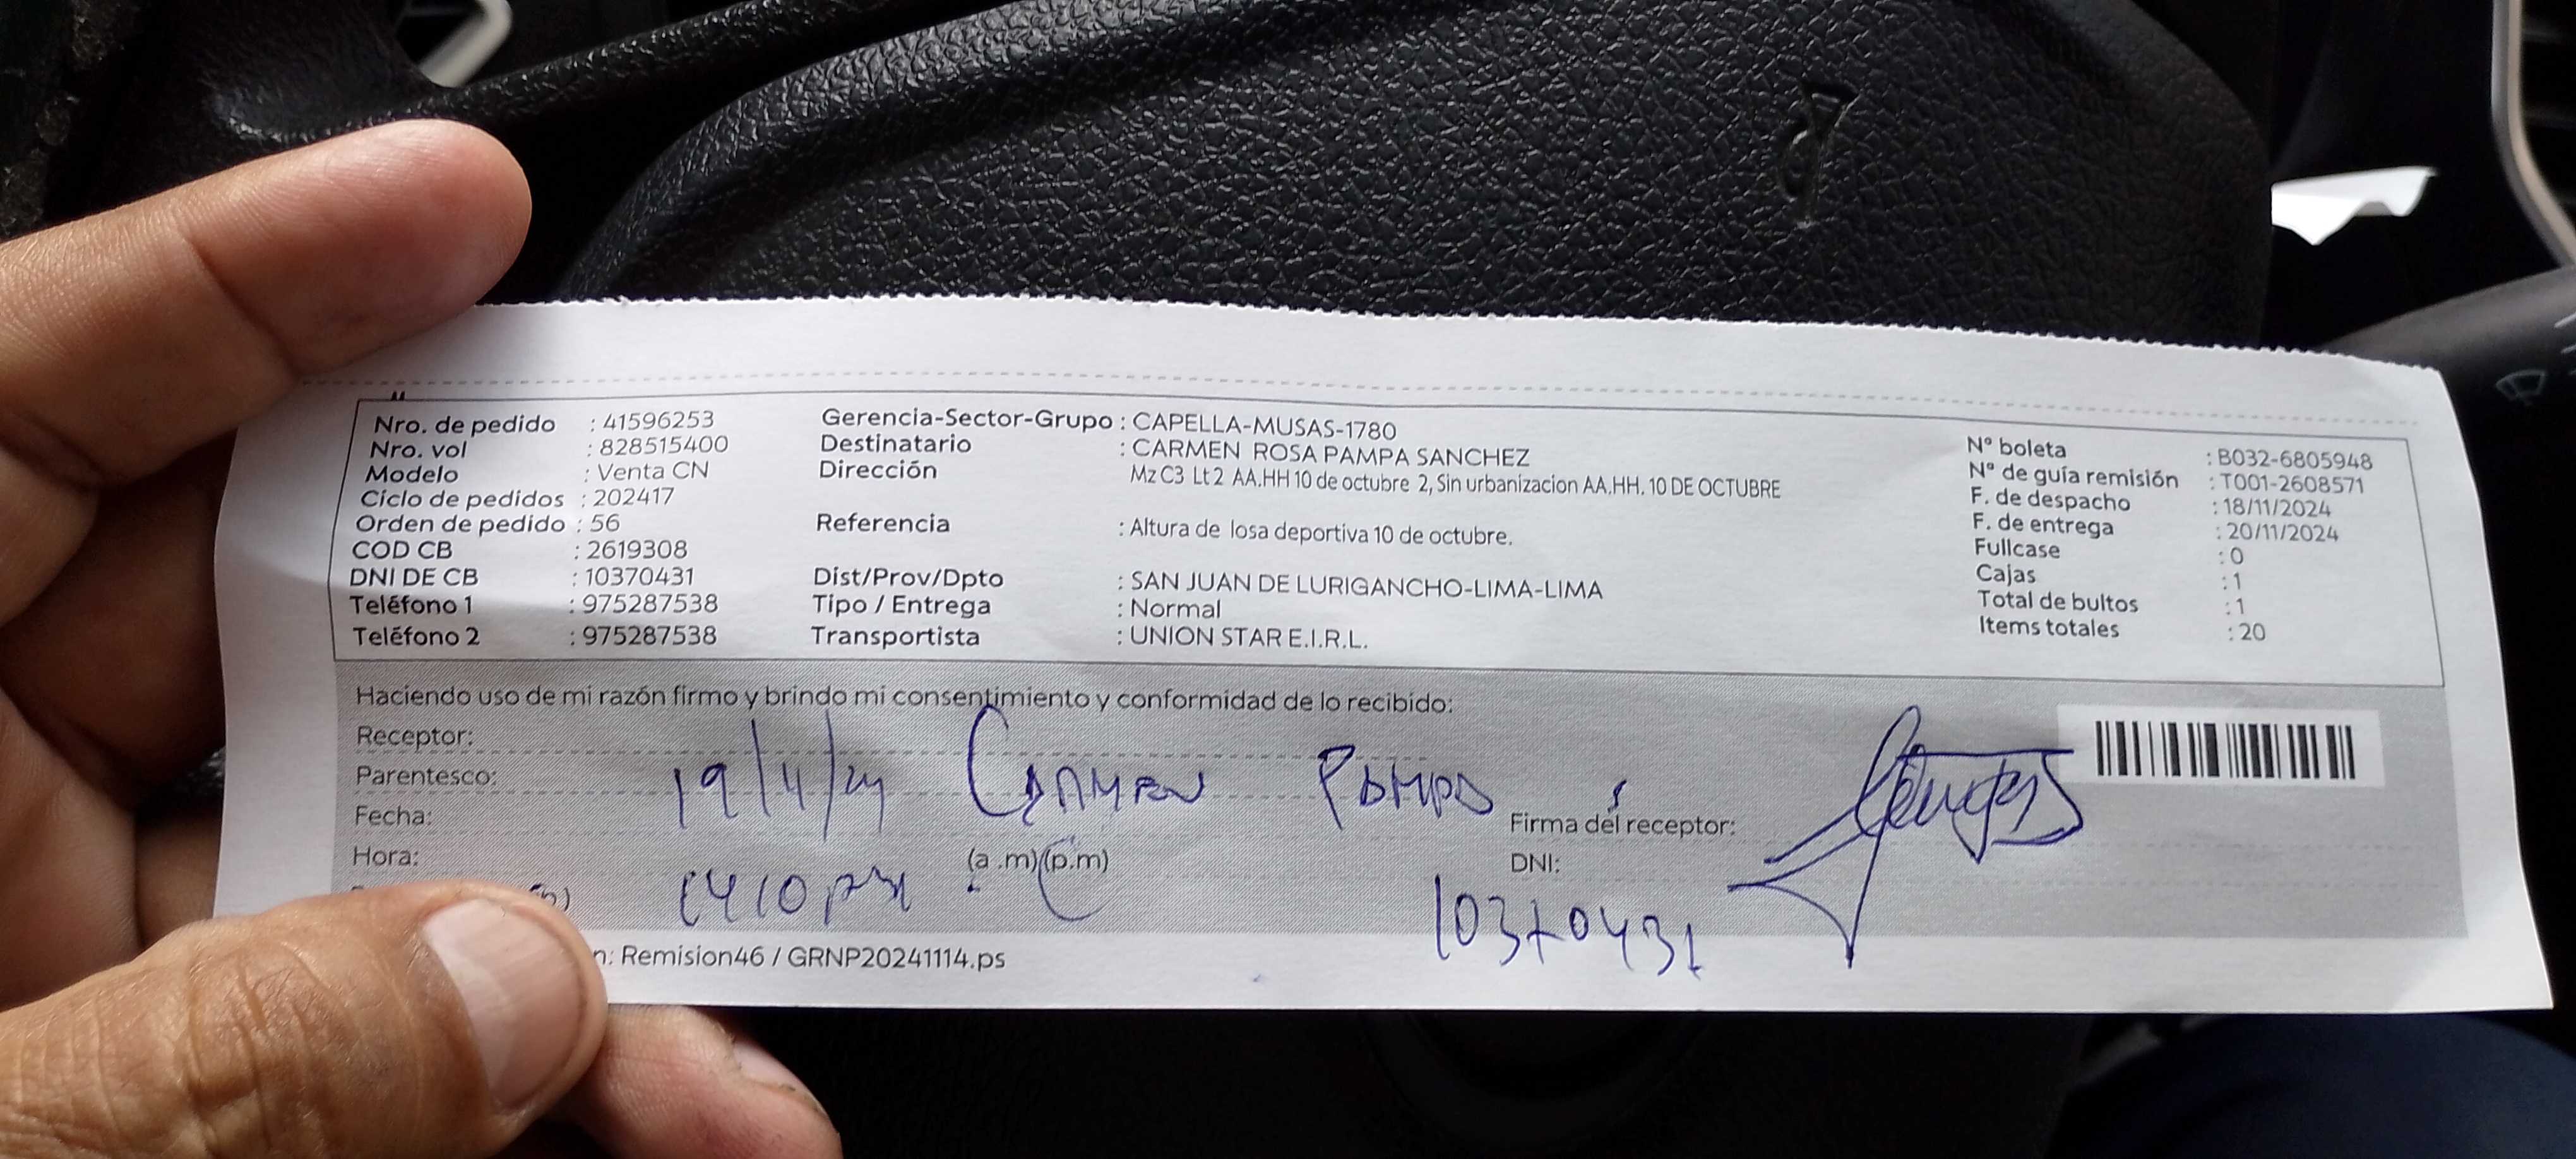 Nro. de pedido : 41596253
Nro. vol : 828515400
Modelo : Venta CN
Ciclo de pedidos : 202417
Orden de pedido : 56
COD CB : 2619308
DNI DE CB : 10370431
Teléfono 1 : 975287538
Teléfono 2 : 975287538
Gerencia-Sector-Grupo : CAPELLA-MUSAS-1780
Destinatario : CARMEN ROSA PAMPA SANCHEZ
Dirección Mz C3 Lt 2 AA.HH 10 de octubre 2, Sin urbanizacion AA.HH. 10 DE OCTUBRE
Referencia : Altura de losa deportiva 10 de octubre.
Dist/Prov/Dpto : SAN JUAN DE LURIGANCHO-LIMA-LIMA
Tipo / Entrega : Normal
Transportista : UNION STAR E.I.R.L.
N° boleta : B032-6805948
N° de guía remisión : T001-2608571
F. de despacho : 18/11/2024
F. de entrega : 20/11/2024
Fullcase : 0
Cajas : 1
Total de bultos : 1
Items totales : 20
Haciendo uso de mi razón firmo y brindo mi consentimiento y conformidad de lo recibido:
Receptor:
Parentesco:
19/11/24 Carmen Pampa
Fecha:
Firma del receptor:
Hora: (a .m) (p.m)
DNI:
1410 pm
10370431
n: Remision46 / GRNP20241114.ps